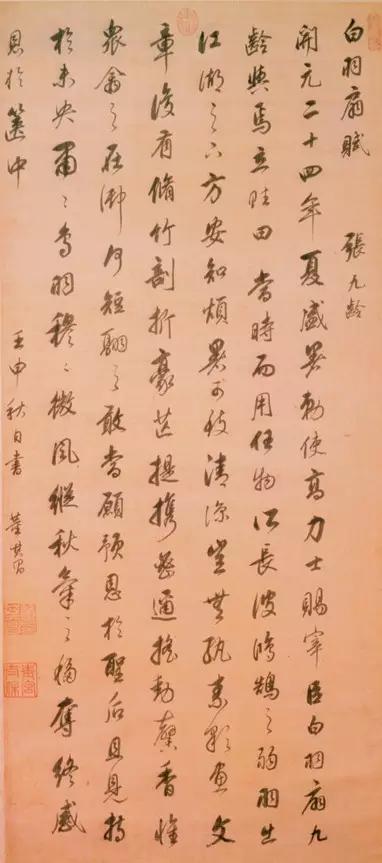 白羽扇賦 張九齡
開元二十四年夏盛暑勅使高力士賜宰臣白羽扇九
齡與焉立賦曰 當時而用任物所長彼鴻鵠之弱羽出
江湖之下方安知煩暑可致清涼豈無紈素彩畫文
章復有脩竹剖析豪芒提攜密邇搖動馨香惟
衆翕之在御何短翮之敢當顧預恩於聖后且見持
於未央肅〻鳥羽穆〻微風縱秋氣之移奪終感
恩於篋中 壬申秋日書 董其昌